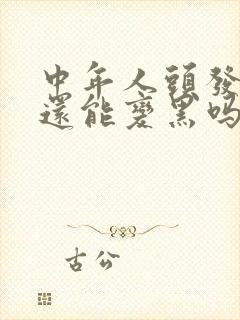 中年人頭發
還能變黑嗎
古公